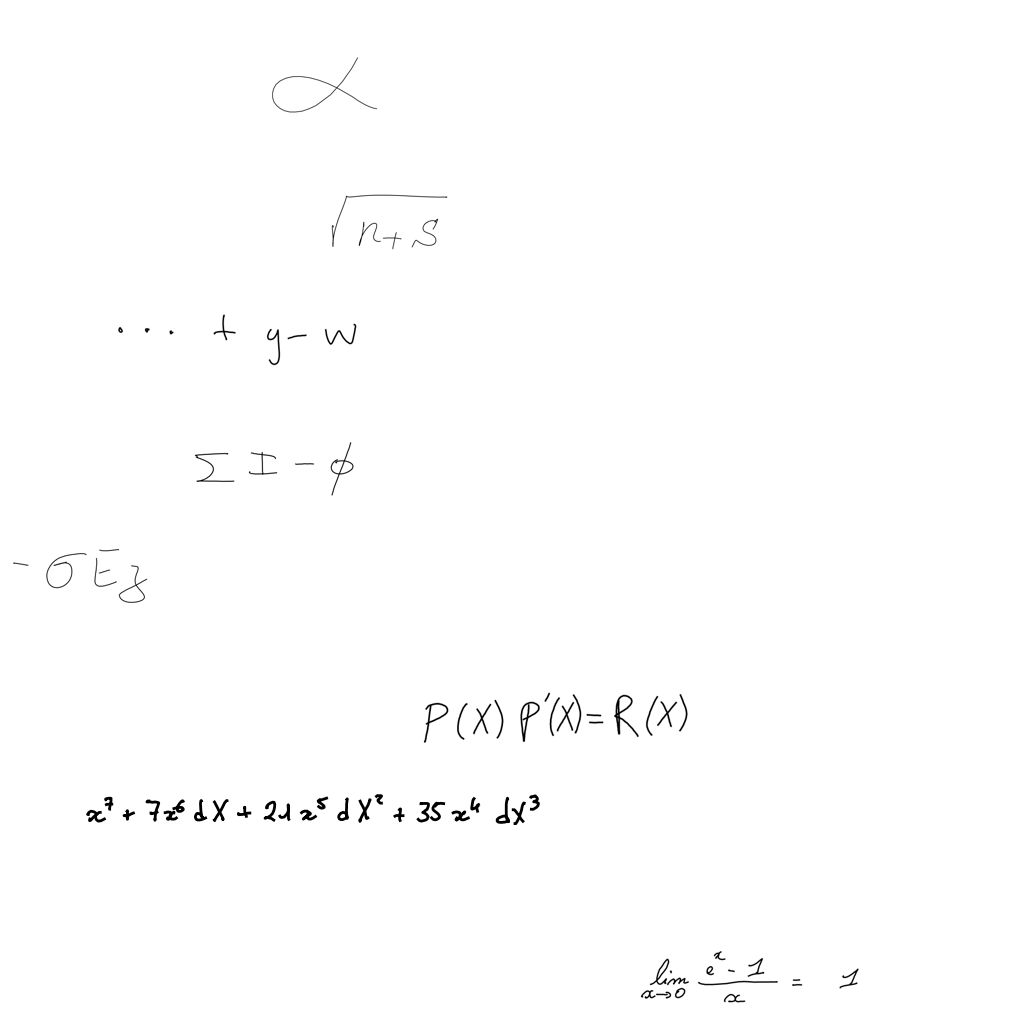 α
√(n+s)
... + y - w
Σ I - ϕ
- σ E z
P(X) P'(X) = R(X)
x⁷ + 7x⁶ dX + 21x⁵ dX² + 35x⁴ dX³
lim_{x→0} (eˣ - 1)/x = 1